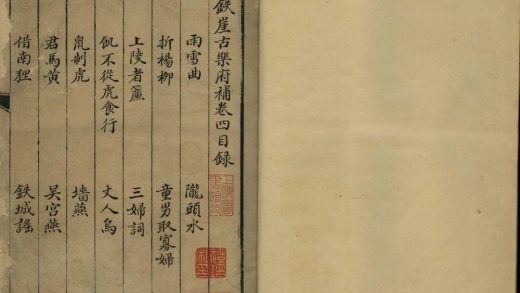 鉄崖古樂府補卷四目録
雨雪曲 隴頭水
折楊柳 童男取寡婦
上陵者篇 三婦詞
飢不從虎食行 丈人烏
鼠制虎 墻燕
君馬黃 吴宫燕
借南狸 鉄城謡